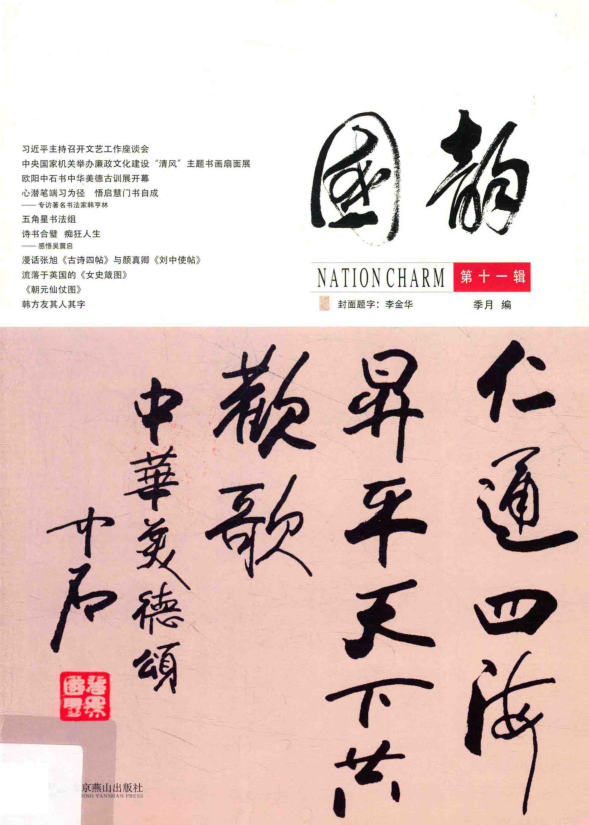 國韵
习近平主持召开文艺工作座谈会
中央国家机关举办廉政文化建设“清风”主题书画扇面展
欧阳中石书中华美德古训展开幕
心潜笔端习为径 悟启慧门书自成
——专访著名书法家韩亨林
五角星书法组
诗书合璧 痴狂人生
——感悟吴震启
漫话张旭《古诗四帖》与颜真卿《刘中使帖》
流落于英国的《女史箴图》
《朝元仙仗图》
韩方友其人其字
NATION CHARM 第十一辑
封面题字：李金华 季月 编
仁通四海
昇平天下共
歡歌
中華美德頌
中石
京燕山出版社
YANSHAN PRESS